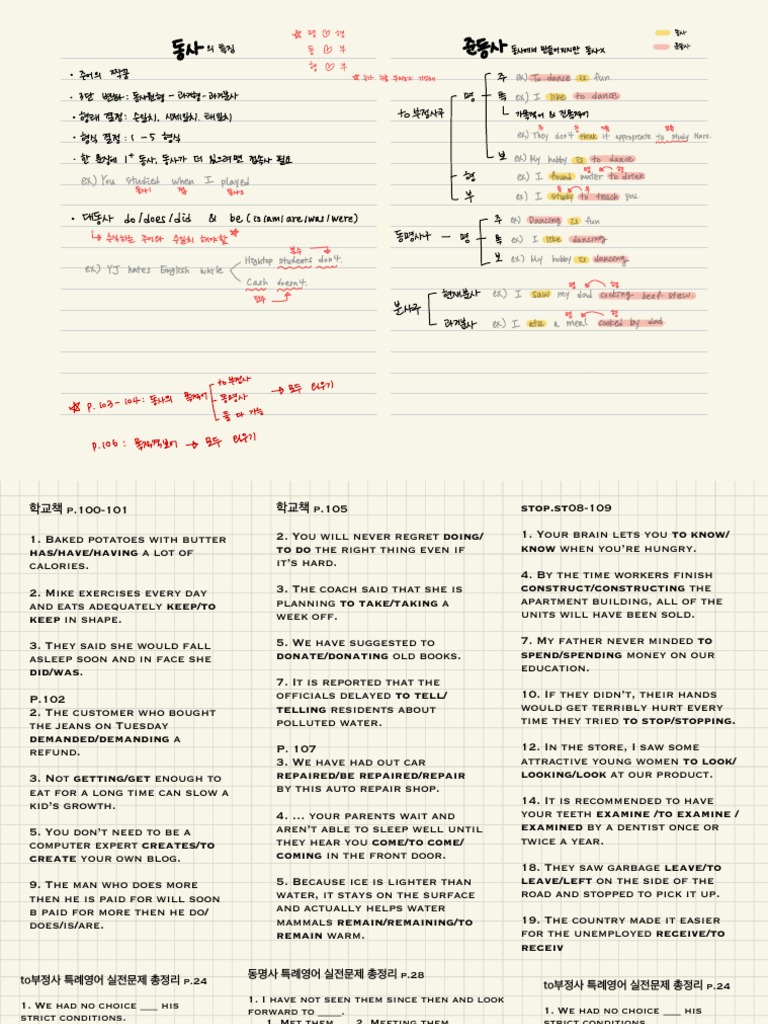 동사의 특징
☆ 명 ♡ 형
동 ♡ 부
형 ♡ 부
• 주어의 짝꿍
• 3단 변화: 동사원형 - 과거형 - 과거분사
• 형태 결정: 수일치, 시제일치, 태일치
• 형식 결정: 1 - 5 형식
• 한 문장에 1+ 동사, 동사가 더 있으려면 접속사 필요
ex) You studied when I played
동사1 접 동사2
• 대동사 do/does/did & be (is/am/are/was/were)
↳ 수식하는 주어와 수일치 해야함 ☆
ex) YJ hates English while
복수
Hightop students don't.
Cash doesn't.
단수
☆ P.103-104: 동사의 목적어
to부정사
동명사
둘 다 가능
→ 모두 외우기
P.106: 목적격보어 → 모두 외우기
준동사 동사에서 만들어지지만 동사X
동사
준동사
to부정사구
명
주 ex) To dance is fun
목 ex) I like to dance
↳ 가목적어 & 진목적어
ex) They don't think it appropriate to study Hard.
보 ex) My hobby is to dance
명 형
형 ex) I found water to drink
부 ex) I study to teach you.
동명사구 - 명
주 ex) Dancing is fun
목 ex) I like dancing
보 ex) My hobby is dancing
분사구
명 형
현재분사 ex) I saw my dad cooking beef stew.
명 형
과거분사 ex) I ate a meal cooked by dad
학교책 P.100-101
1. BAKED POTATOES WITH BUTTER
HAS/HAVE/HAVING A LOT OF
CALORIES.
2. MIKE EXERCISES EVERY DAY
AND EATS ADEQUATELY KEEP/TO
KEEP IN SHAPE.
3. THEY SAID SHE WOULD FALL
ASLEEP SOON AND IN FACE SHE
DID/WAS.
P.102
2. THE CUSTOMER WHO BOUGHT
THE JEANS ON TUESDAY
DEMANDED/DEMANDING A
REFUND.
3. NOT GETTING/GET ENOUGH TO
EAT FOR A LONG TIME CAN SLOW A
KID'S GROWTH.
5. YOU DON'T NEED TO BE A
COMPUTER EXPERT CREATES/TO
CREATE YOUR OWN BLOG.
9. THE MAN WHO DOES MORE
THEN HE IS PAID FOR WILL SOON
B PAID FOR MORE THEN HE DO/
DOES/IS/ARE.
to부정사 특례영어 실전문제 총정리 P.24
1. WE HAD NO CHOICE ___ HIS
STRICT CONDITIONS.
학교책 P.105
2. YOU WILL NEVER REGRET DOING/
TO DO THE RIGHT THING EVEN IF
IT'S HARD.
3. THE COACH SAID THAT SHE IS
PLANNING TO TAKE/TAKING A
WEEK OFF.
5. WE HAVE SUGGESTED TO
DONATE/DONATING OLD BOOKS.
7. IT IS REPORTED THAT THE
OFFICIALS DELAYED TO TELL/
TELLING RESIDENTS ABOUT
POLLUTED WATER.
P. 107
3. WE HAVE HAD OUT CAR
REPAIRED/BE REPAIRED/REPAIR
BY THIS AUTO REPAIR SHOP.
4. ... YOUR PARENTS WAIT AND
AREN'T ABLE TO SLEEP WELL UNTIL
THEY HEAR YOU COME/TO COME/
COMING IN THE FRONT DOOR.
5. BECAUSE ICE IS LIGHTER THAN
WATER, IT STAYS ON THE SURFACE
AND ACTUALLY HELPS WATER
MAMMALS REMAIN/REMAINING/TO
REMAIN WARM.
동명사 특례영어 실전문제 총정리 P.28
1. I HAVE NOT SEEN THEM SINCE THEN AND LOOK
FORWARD TO ____.
1. MET THEM 2. MEETING THEM
STOP.ST08-109
1. YOUR BRAIN LETS YOU TO KNOW/
KNOW WHEN YOU'RE HUNGRY.
4. BY THE TIME WORKERS FINISH
CONSTRUCT/CONSTRUCTING THE
APARTMENT BUILDING, ALL OF THE
UNITS WILL HAVE BEEN SOLD.
7. MY FATHER NEVER MINDED TO
SPEND/SPENDING MONEY ON OUR
EDUCATION.
10. IF THEY DIDN'T, THEIR HANDS
WOULD GET TERRIBLY HURT EVERY
TIME THEY TRIED TO STOP/STOPPING.
12. IN THE STORE, I SAW SOME
ATTRACTIVE YOUNG WOMEN TO LOOK/
LOOKING/LOOK AT OUR PRODUCT.
14. IT IS RECOMMENDED TO HAVE
YOUR TEETH EXAMINE /TO EXAMINE /
EXAMINED BY A DENTIST ONCE OR
TWICE A YEAR.
18. THEY SAW GARBAGE LEAVE/TO
LEAVE/LEFT ON THE SIDE OF THE
ROAD AND STOPPED TO PICK IT UP.
19. THE COUNTRY MADE IT EASIER
FOR THE UNEMPLOYED RECEIVE/TO
RECEIV
to부정사 특례영어 실전문제 총정리 P.24
1. WE HAD NO CHOICE ___ HIS
STRICT CONDITIONS.